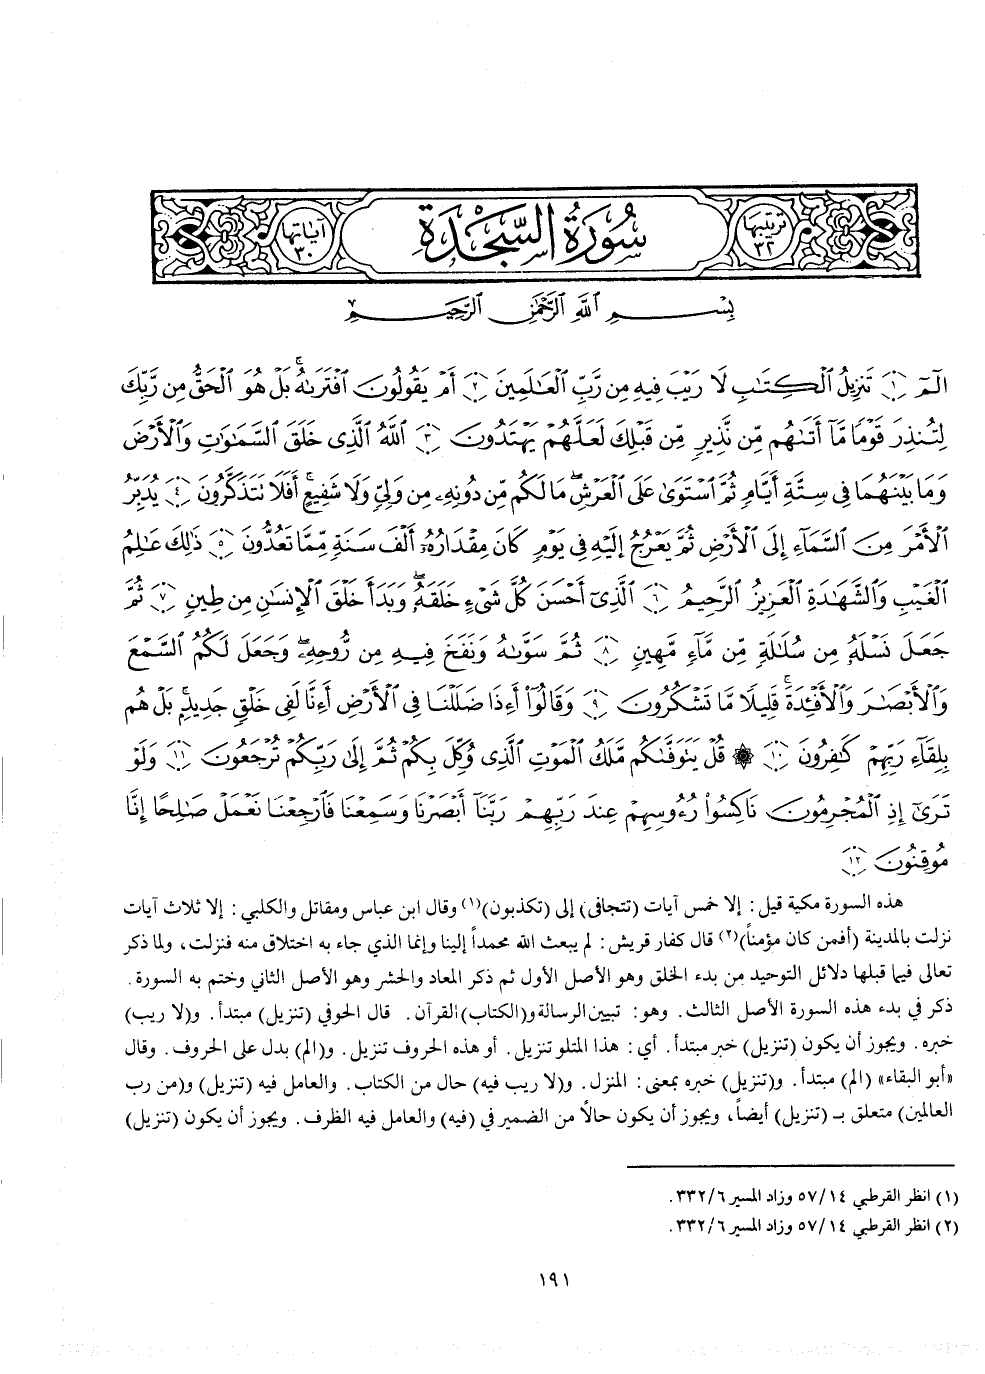 ترتيبها ٣٢
سُورَةُ السَّجْدَةِ
آياتها ٣٠
بِسْمِ ٱللَّهِ ٱلرَّحْمَٰنِ ٱلرَّحِيمِ
الٓمٓ ﴿١﴾ تَنزِيلُ ٱلْكِتَٰبِ لَا رَيْبَ فِيهِ مِن رَّبِّ ٱلْعَٰلَمِينَ ﴿٢﴾ أَمْ يَقُولُونَ ٱفْتَرَىٰهُ ۚ بَلْ هُوَ ٱلْحَقُّ مِن رَّبِّكَ
لِتُنذِرَ قَوْمًا مَّآ أَتَىٰهُم مِّن نَّذِيرٍ مِّن قَبْلِكَ لَعَلَّهُمْ يَهْتَدُونَ ﴿٣﴾ ٱللَّهُ ٱلَّذِى خَلَقَ ٱلسَّمَٰوَٰتِ وَٱلْأَرْضَ
وَمَا بَيْنَهُمَا فِى سِتَّةِ أَيَّامٍ ثُمَّ ٱسْتَوَىٰ عَلَى ٱلْعَرْشِ ۖ مَا لَكُم مِّن دُونِهِۦ مِن وَلِىٍّ وَلَا شَفِيعٍ ۚ أَفَلَا تَتَذَكَّرُونَ ﴿٤﴾ يُدَبِّرُ
ٱلْأَمْرَ مِنَ ٱلسَّمَآءِ إِلَى ٱلْأَرْضِ ثُمَّ يَعْرُجُ إِلَيْهِ فِى يَوْمٍ كَانَ مِقْدَارُهُۥٓ أَلْفَ سَنَةٍ مِّمَّا تَعُدُّونَ ﴿٥﴾ ذَٰلِكَ عَٰلِمُ
ٱلْغَيْبِ وَٱلشَّهَٰدَةِ ٱلْعَزِيزُ ٱلرَّحِيمُ ﴿٦﴾ ٱلَّذِىٓ أَحْسَنَ كُلَّ شَىْءٍ خَلَقَهُۥ ۖ وَبَدَأَ خَلْقَ ٱلْإِنسَٰنِ مِن طِينٍ ﴿٧﴾ ثُمَّ
جَعَلَ نَسْلَهُۥ مِن سُلَٰلَةٍ مِّن مَّآءٍ مَّهِينٍ ﴿٨﴾ ثُمَّ سَوَّىٰهُ وَنَفَخَ فِيهِ مِن رُّوحِهِۦ ۖ وَجَعَلَ لَكُمُ ٱلسَّمْعَ
وَٱلْأَبْصَٰرَ وَٱلْأَفْـِٔدَةَ ۚ قَلِيلًا مَّا تَشْكُرُونَ ﴿٩﴾ وَقَالُوٓا۟ أَءِذَا ضَلَلْنَا فِى ٱلْأَرْضِ أَءِنَّا لَفِى خَلْقٍ جَدِيدٍۭ ۚ بَلْ هُم
بِلِقَآءِ رَبِّهِمْ كَٰفِرُونَ ﴿١٠﴾ ۞ قُلْ يَتَوَفَّىٰكُم مَّلَكُ ٱلْمَوْتِ ٱلَّذِى وُكِّلَ بِكُمْ ثُمَّ إِلَىٰ رَبِّكُمْ تُرْجَعُونَ ﴿١١﴾ وَلَوْ
تَرَىٰٓ إِذِ ٱلْمُجْرِمُونَ نَاكِسُوا۟ رُءُوسِهِمْ عِندَ رَبِّهِمْ رَبَّنَآ أَبْصَرْنَا وَسَمِعْنَا فَٱرْجِعْنَا نَعْمَلْ صَٰلِحًا إِنَّا
مُوقِنُونَ ﴿١٢﴾
هذه السورة مكية قيل: إلا خمس آيات (تتجافى) إلى (تكذبون)(١) وقال ابن عباس ومقاتل والكلبي: إلا ثلاث آيات
نزلت بالمدينة (أفمن كان مؤمناً)(٢) قال كفار قريش: لم يبعث الله محمداً إلينا وإنما الذي جاء به اختلاق منه فنزلت، ولما ذكر
تعالى فيما قبلها دلائل التوحيد من بدء الخلق وهو الأصل الأول ثم ذكر المعاد والحشر وهو الأصل الثاني وختم به السورة.
ذكر في بدء هذه السورة الأصل الثالث. وهو: تبيين الرسالة و(الكتاب) القرآن. قال الحوفي (تنزيل) مبتدأ. و(لا ريب)
خبره. ويجوز أن يكون (تنزيل) خبر مبتدأ. أي: هذا المتلو تنزيل. أو هذه الحروف تنزيل. و(الم) بدل على الحروف. وقال
«أبو البقاء» (الم) مبتدأ. و(تنزيل) خبره بمعنى: المنزل. و(لا ريب فيه) حال من الكتاب. والعامل فيه (تنزيل) و(من رب
العالمين) متعلق بـ (تنزيل) أيضاً، ويجوز أن يكون حالاً من الضمير في (فيه) والعامل فيه الظرف. ويجوز أن يكون (تنزيل)
(١) انظر القرطبي ٥٧/١٤ وزاد المسير ٣٣٢/٦.
(٢) انظر القرطبي ٥٧/١٤ وزاد المسير ٣٣٢/٦.
١٩١